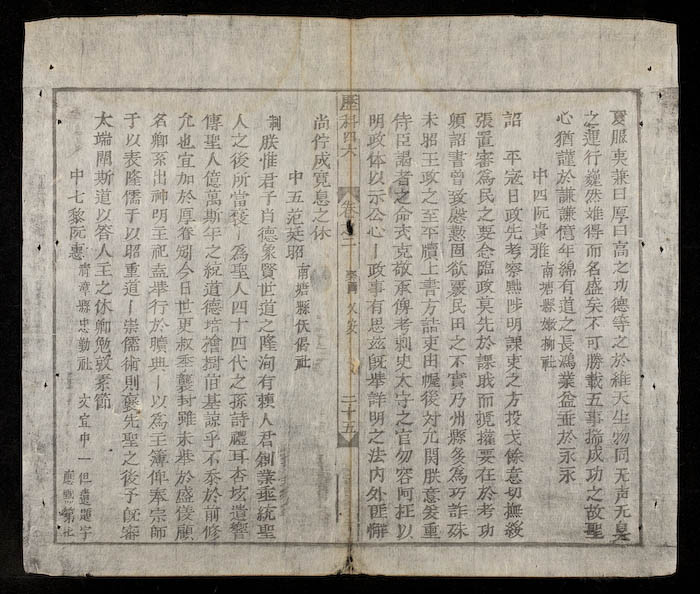 夏服夷兼曰厚曰高之功德等之於維天生物同无声无臭
之運行巍然雄得而名盛矣不可勝載五事揚成功之故聖
心猶謹於謙謙億年綿有道之長鴻業益垂於永永
中四阮貴雅 南塘縣嫩柳社
詔 平寇日政先考察黜陟明課吏之方投戈係意切撫綏
張置審為民之要念臨政莫先於課戢而媲攉要在於考功
頒詔書曾致慇懃固欲蒙民田之不實乃州縣多為巧詐殊
未邪王政之至平牘上書方詰吏由幄後对允聞朕意爰重
侍臣謁者之命式克敬承俾考剌史太守之官勿容阿枉以
明政体以示公心丨政事有恩茲旣舉詳明之法内外匪懈
尚佇成寬息之休
中五范廷昭 南塘縣伏
制 朕惟君子肖德象賢世道之隆洵有賴人君創業垂統聖
人之後所當襃丨為聖人四十四代之孫詩禮耳杏坛遺響
傳聖人億萬斯年之統道德培檜樹佰基諒乎不忝於前修
允也宜加於厚眷矧今日世更叔季襲封雖未举於盛儀顧
名卿系出神明主祀盍舉行於曠典丨以為主簿俾奉宗師
于以表隆儒于以昭重道丨崇儒術則襃先聖之後予旣審
大端闡斯道以答人王之休卿勉敦素節
中七黎阮惠 清漳縣忠勤社 文宜中一但違題字
歷科四六 卷二 癸酉 久安 二十五